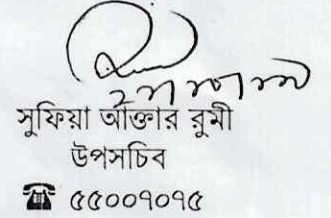 সুফিয়া আক্তার রুমী
উপসচিব
☎ ৫৫০০৭০৭৫